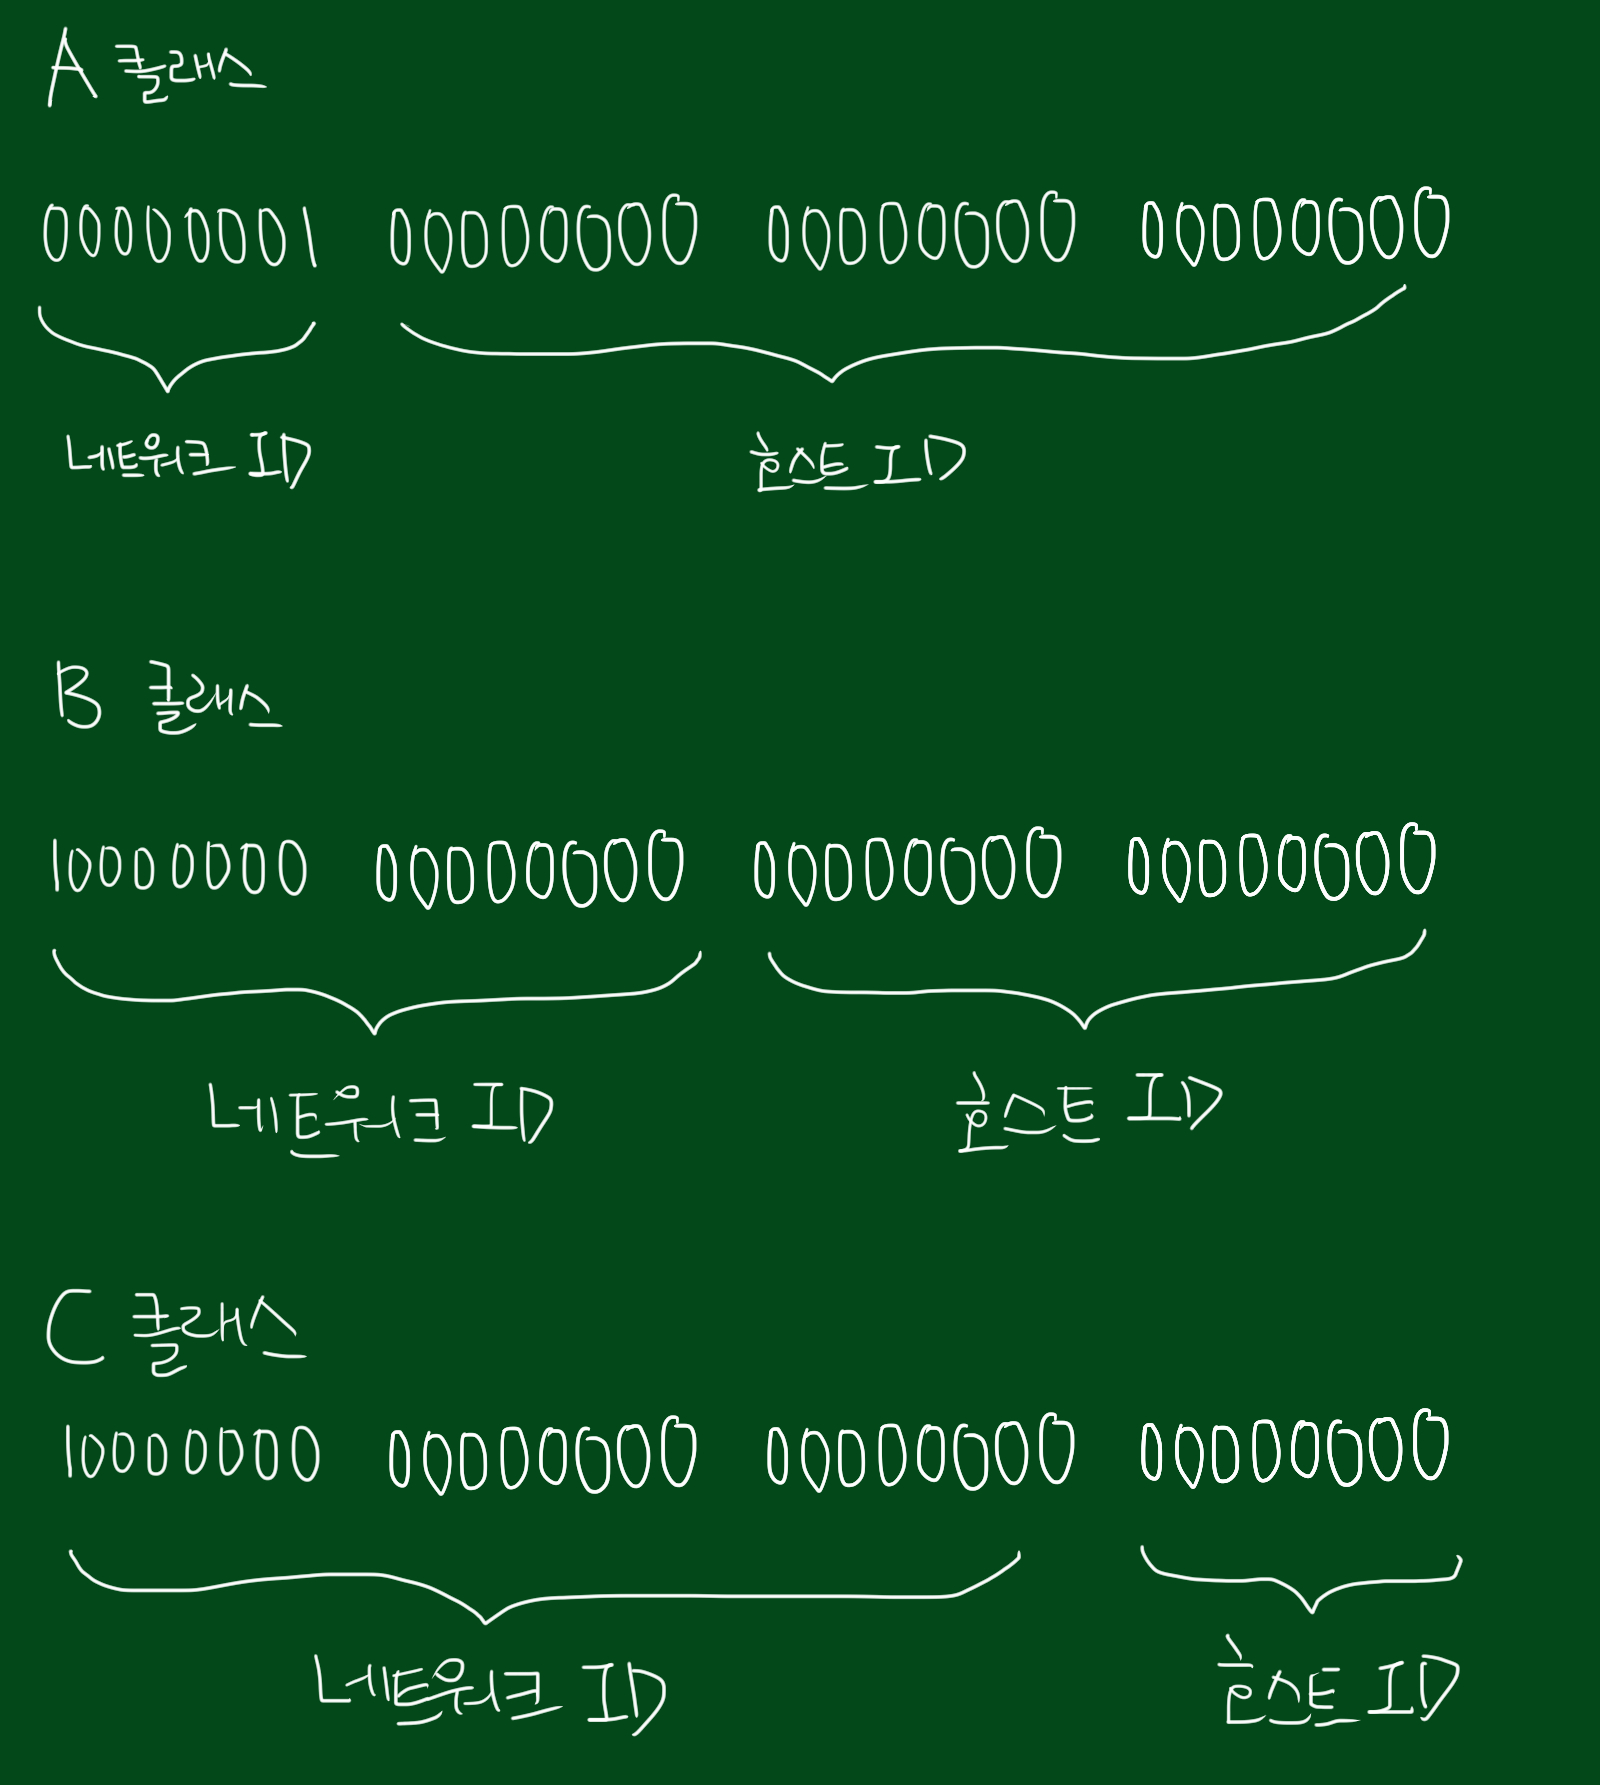 A 클래스
00000001 00000000 00000000 00000000
네트워크 ID 호스트 ID
B 클래스
10000000 00000000 00000000 00000000
네트워크 ID 호스트 ID
C 클래스
10000000 00000000 00000000 00000000
네트워크 ID 호스트 ID